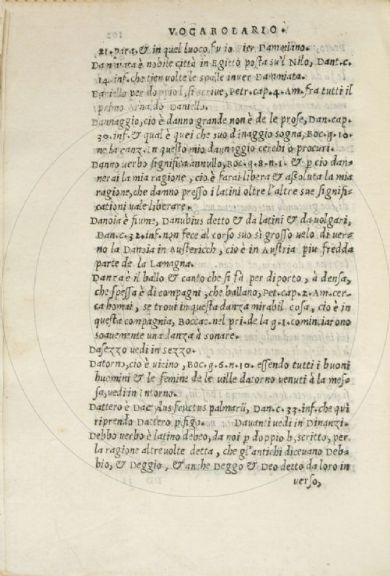 VOCABOLARIO.
21. para, & in quel luoco fu io Pier Damiano.
Damiata è nobile città in Egitto posta su'l Nilo, Dant.c.
14. inf. che tien volte le spalle inver Dammiata.
Daniello per doppio l, si scrive, Petr.cap.4. Am. fra tutti il
primo Arnaldo Daniello.
Dannaggio, cio è danno grande non è de le prose, Dan.cap.
30. inf. & qual è quei che suo dannaggio sogna, Boc.g.10.
ne ha canz. In questo mio dannaggio cerchi o procuri.
Danno verbo significa annullo, Boc.g.8.n.1. & p cio dan
nerai la mia ragione, cio è farai libera & assoluta la mia
ragione, che danno presso i latini oltre l'altre sue signifi-
cationi vale liberare.
Danoia è fiume, Danubius detto & da latini & da volgari,
Dan.c.32. inf. non fece al corso suo sì grosso velo di ver
no la Danoia in Austericch, cio è in Austria piu fredda
parte de la Lamagna.
Danza è il ballo & canto che si fà per diporto, à densa,
che spessa è di compagni, che ballano, Pet.cap.2. Am. cer
ca homai, se trovi in questa danza mirabil cosa, cio è in
questa compagnia, Boccac. nel pri. de la g.1. cominciarono
soavemente una danza à sonare.
Dasezzo vedi in sezzo.
Datorno, cio è vicino, Boc.g.6.n.10. essendo tutti i buoni
huomini & le femine de le ville datorno venuti à la mes-
sa, vedi in Intorno.
Dattero è Dactylus fructus palmarũ, Dan.c.33. inf. che quì
riprendo Dattero p figo. Davanti vedi in Dinanzi.
Debbo verbo è latino debeo, da noi p doppio b, scritto, per
la ragione altre volte detta, che gl'antichi dicevano Deb-
bio, & Deggio, & anche Deggo & Deo detto da loro in
verso,